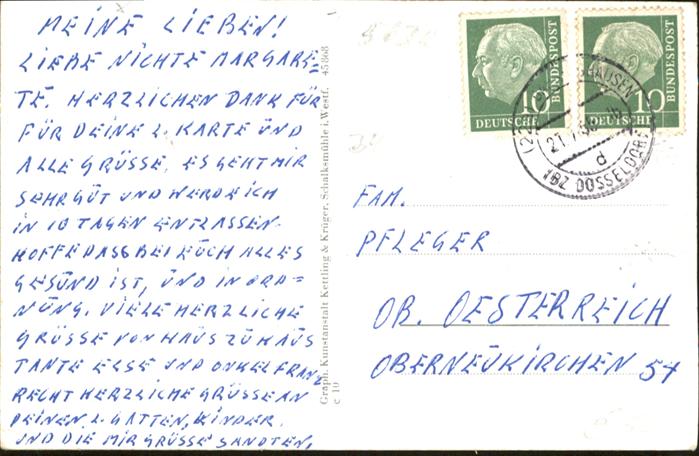 MEINE LIEBEN!
LIEBE NICHTE MARGARE=
TE. HERZLICHEN DANK FÜR
FÜR DEINE L. KARTE ÜND
ALLE GRÜSSE. ES GEHT MIR
SEHR GÜT UND WERDE ICH
IN 10 TAGEN ENTLASSEN.
HOFFE DASS BEI EÜCH ALLES
GESÜND IST, ÜND IN ORD=
NÜNG. VIELE HERZLICHE
GRÜSSE VON HAÜS ZÜ HAÜS
TANTE ELSE UND ONKEL FRANZ
RECHT HERZLICHE GRÜSSE AN
DEINEN L. GATTEN, KINDER.
UND DIE MIR GRÜSSE SANDTEN.
Graph. Kunstanstalt Kettling & Krüger, Schalksmühle i. Westf. 45868
c 10
10 BUNDESPOST
DEUTSCHE
10 BUNDESPOST
DEUTSCHE
HAUSEN
d
BZ DÜSSELDORF
FAM.
PFLEGER
OB. OESTERREICH
OBERNEÜKIRCHEN 54